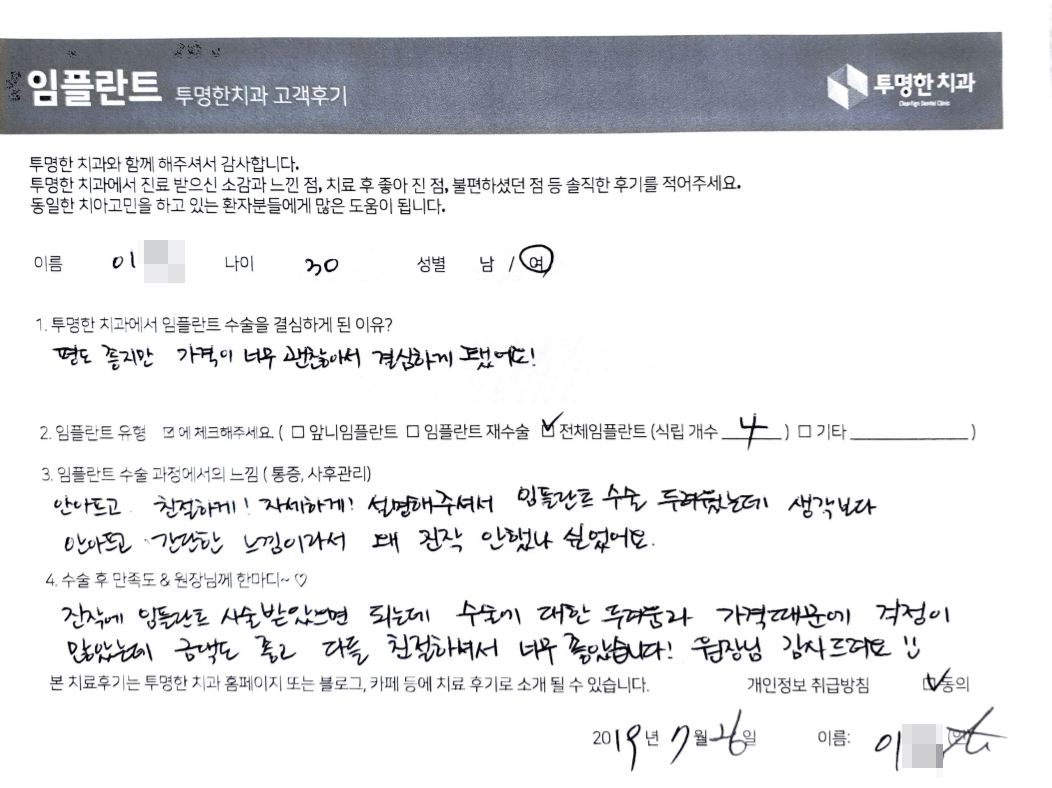 임플란트 투명한치과 고객후기
투명한 치과
투명한 치과와 함께 해주셔서 감사합니다.
투명한 치과에서 진료 받으신 소감과 느낀 점, 치료 후 좋아 진 점, 불편하셨던 점 등 솔직한 후기를 적어주세요.
동일한 치아고민을 하고 있는 환자분들에게 많은 도움이 됩니다.
이름 이 나이 30 성별 남 / 여
1. 투명한 치과에서 임플란트 수술을 결심하게 된 이유?
평도 좋지만 가격이 너무 괜찮아서 결심하게 됐어요!
2. 임플란트 유형 ☑에 체크해주세요. ( ☐ 앞니임플란트 ☐ 임플란트 재수술 ☑ 전체임플란트 (식립 개수 4 ) ☐ 기타 )
3. 임플란트 수술 과정에서의 느낌 ( 통증, 사후관리)
안아프고 친절하게! 자세하게! 설명해주셔서 임플란트 수술 두려웠는데 생각보다
안아프고 간단한 느낌이라서 왜 진작 안했나 싶었어요.
4. 수술 후 만족도 & 원장님께 한마디~ ♡
진작에 임플란트 시술받았으면 되는데 수술에 대한 두려움과 가격때문에 걱정이
많았는데 금액도 좋고 다들 친절하셔서 너무 좋았습니다! 원장님 감사드려요
본 치료후기는 투명한 치과 홈페이지 또는 블로그, 카페 등에 치료 후기로 소개 될 수 있습니다. 개인정보 취급방침 ☑동의
2019년 7월 26일 이름: 이 (인)